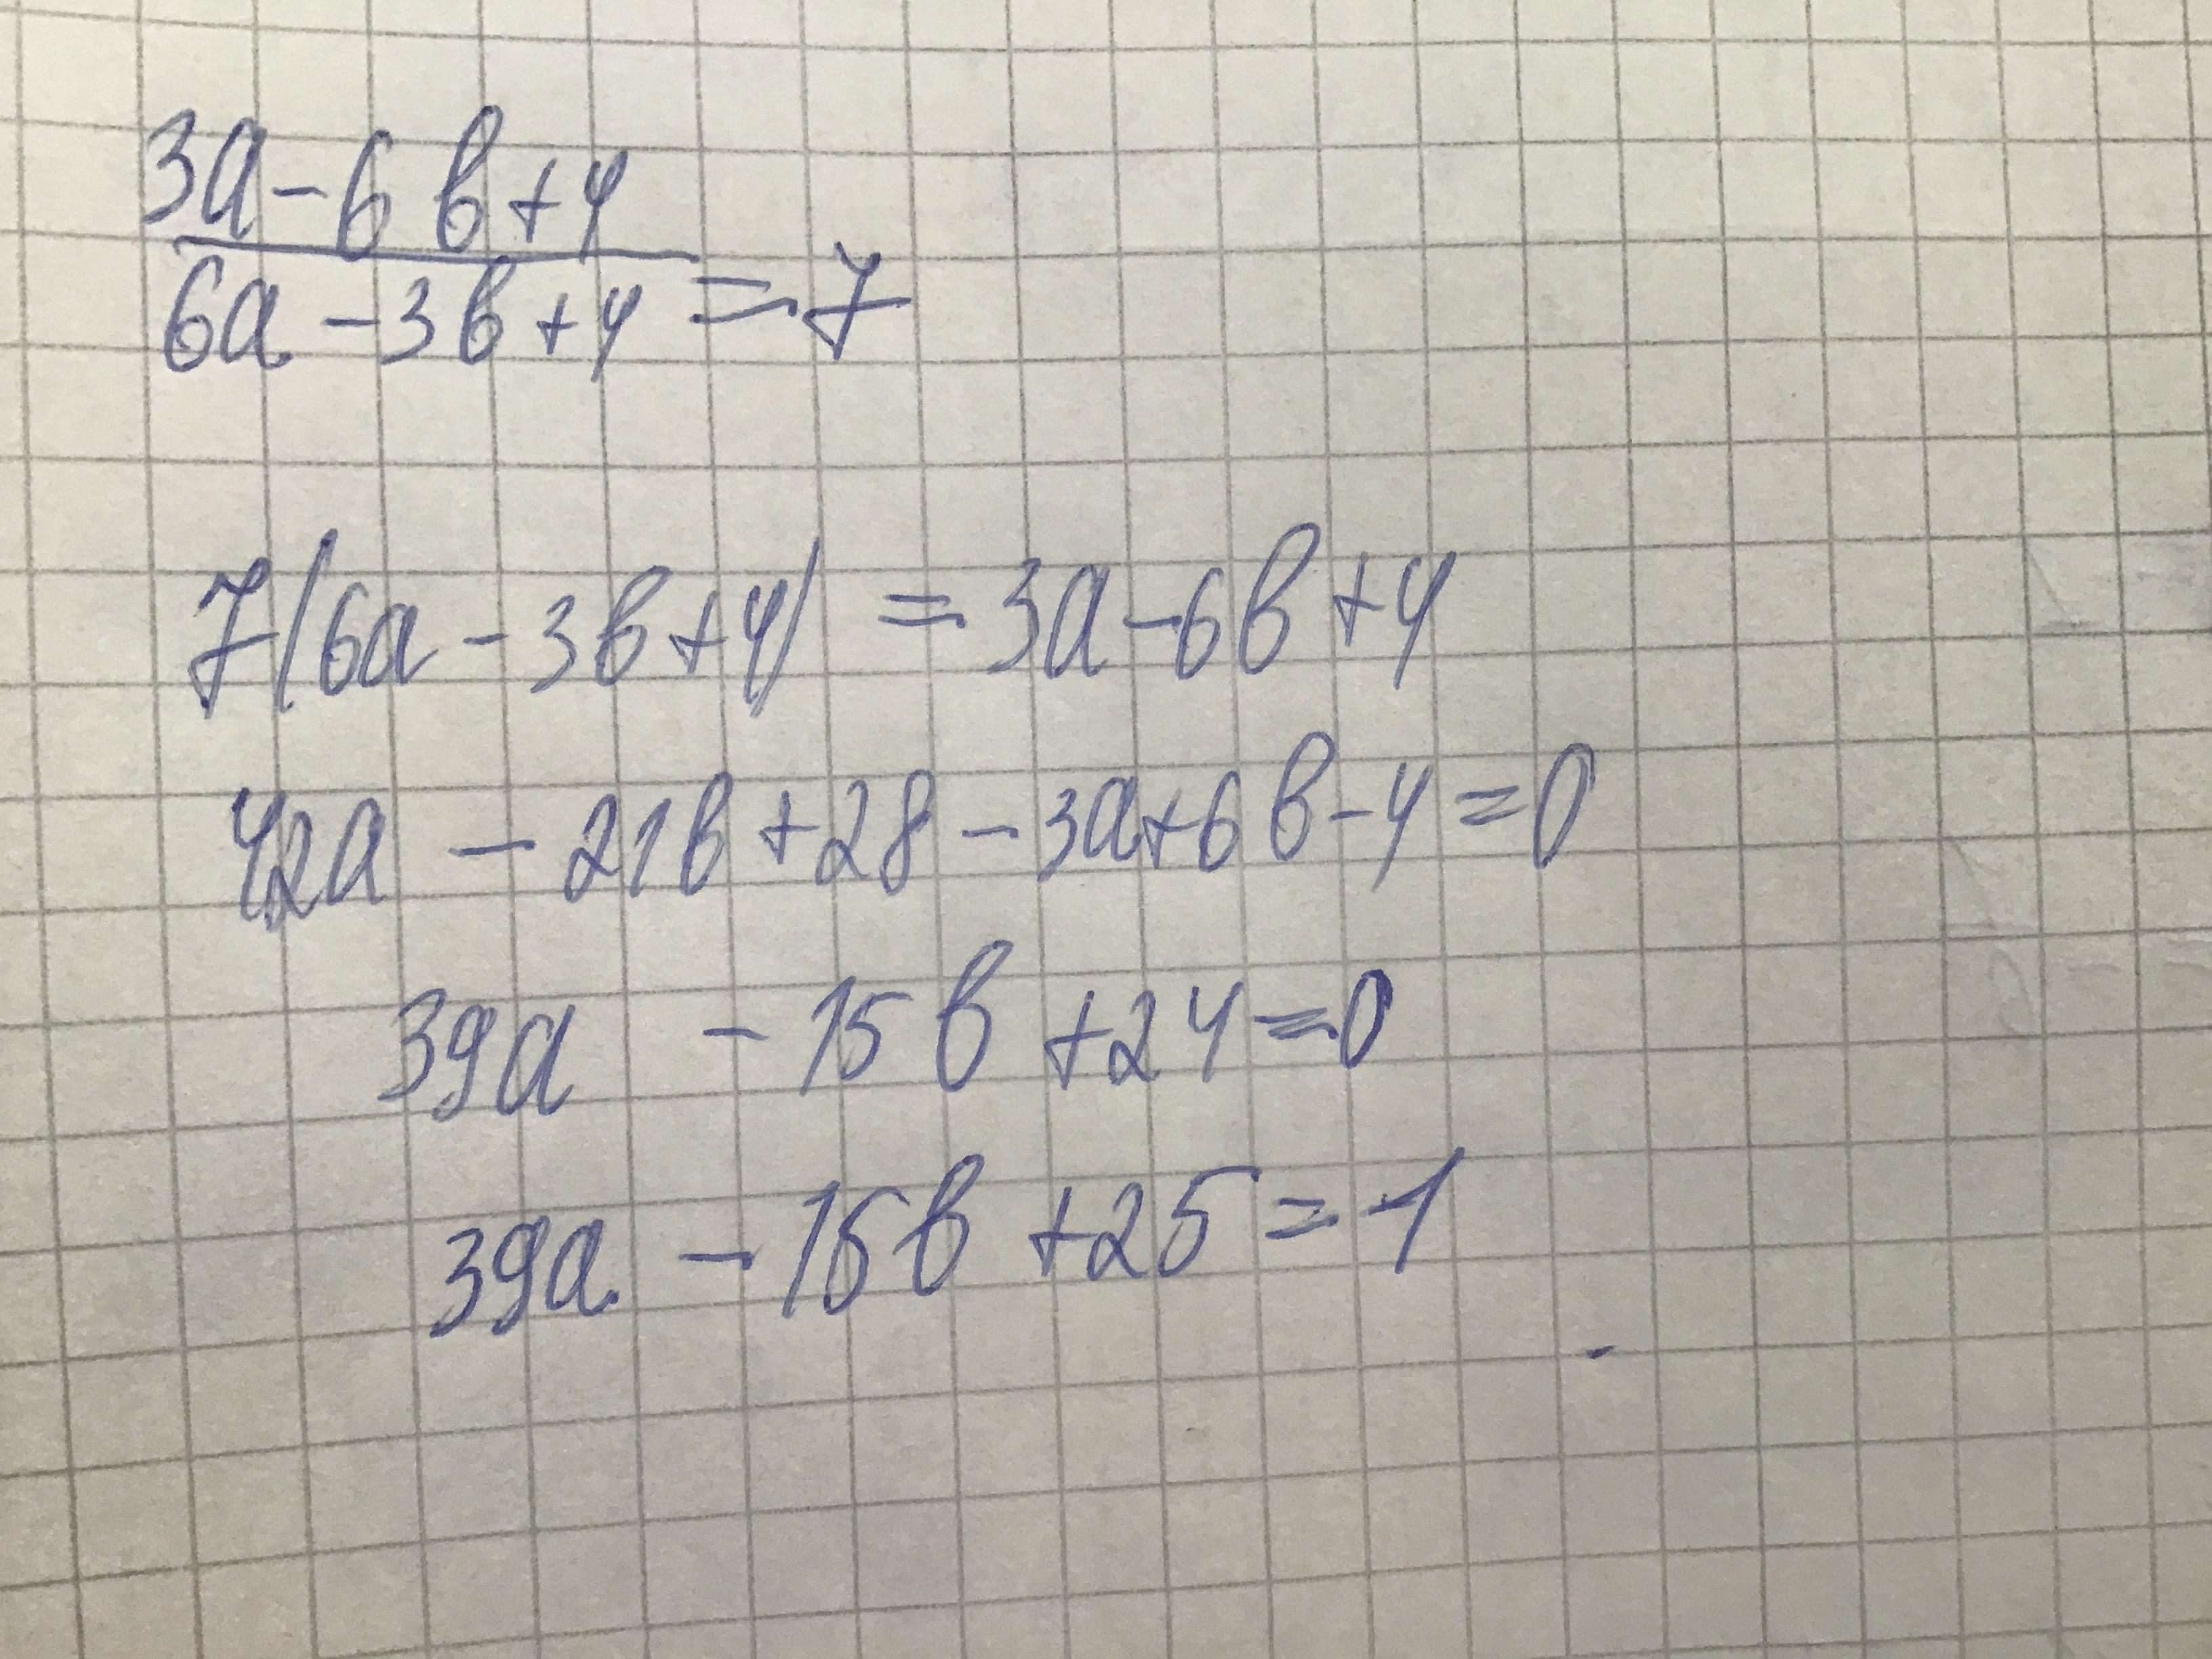 3a-6b+4
6a-3b+4 = 7
7(6a-3b+4) = 3a-6b+4
42a - 21b+28-3a+6b-4=0
39a - 15b +24=0
39a - 15b +25=-1